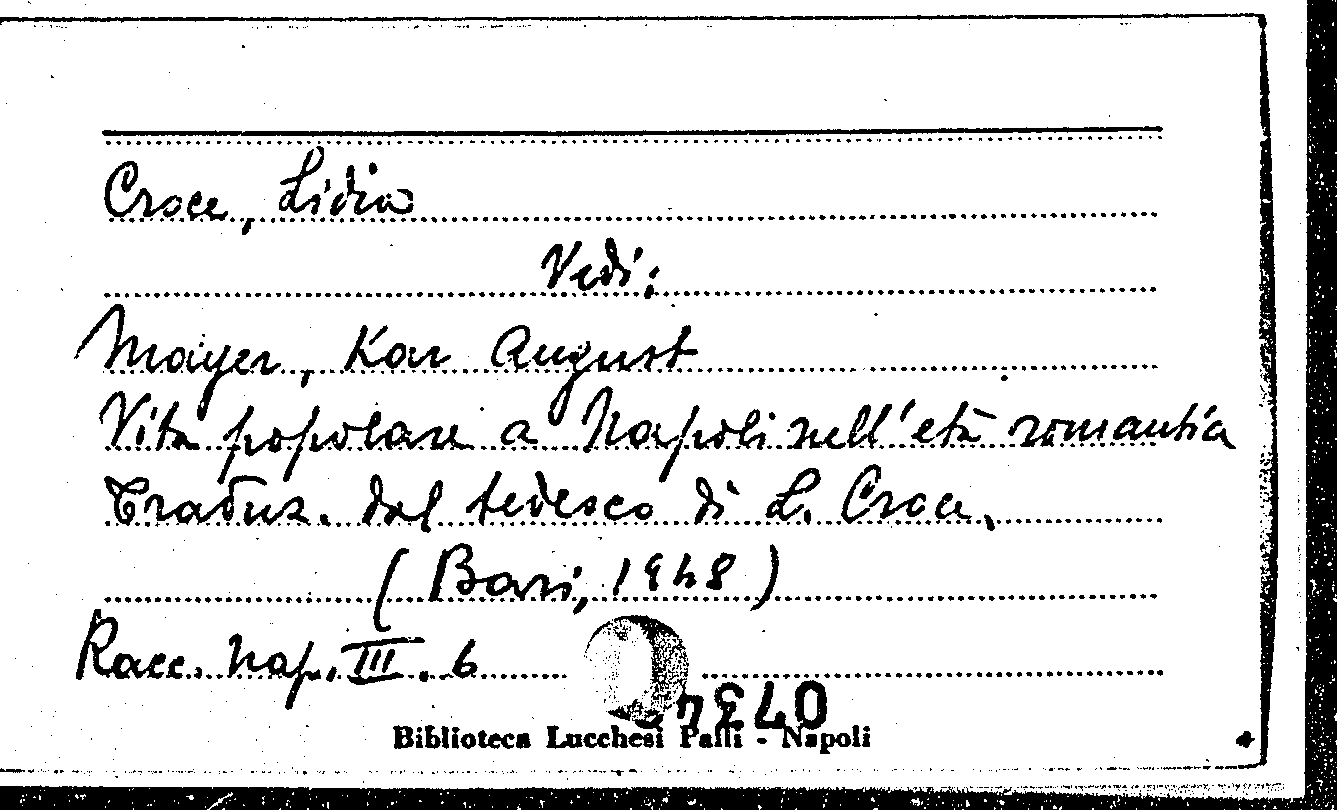 Croce, Lidia
Vedi:
Mayer, Kar August
Vita popolare a Napoli nell'età romantica
Traduz. dal tedesco di L. Croce.
(Bari, 1948)
Racc. Nap. III. 6
Biblioteca Lucchesi Palli - Napoli